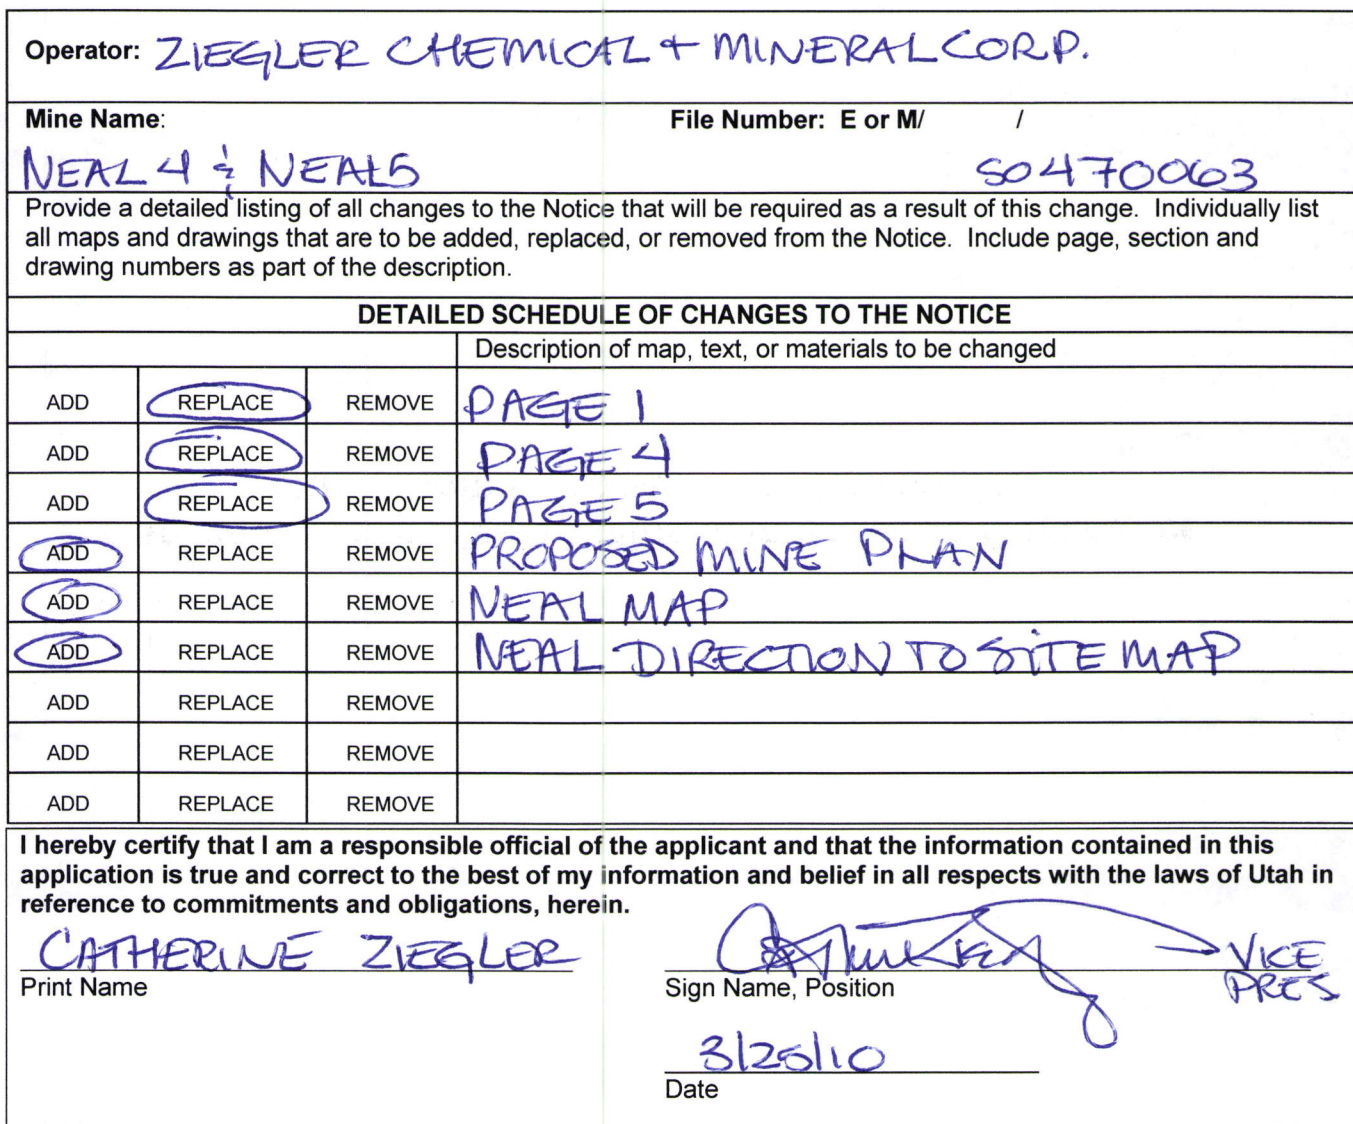 Operator: ZIEGLER CHEMICAL + MINERAL CORP.
Mine Name: File Number: E or M/ /
NEAL 4 & NEAL 5 S0470063
Provide a detailed listing of all changes to the Notice that will be required as a result of this change. Individually list
all maps and drawings that are to be added, replaced, or removed from the Notice. Include page, section and
drawing numbers as part of the description.
DETAILED SCHEDULE OF CHANGES TO THE NOTICE
Description of map, text, or materials to be changed
ADD REPLACE REMOVE PAGE 1
ADD REPLACE REMOVE PAGE 4
ADD REPLACE REMOVE PAGE 5
ADD REPLACE REMOVE PROPOSED MINE PLAN
ADD REPLACE REMOVE NEAL MAP
ADD REPLACE REMOVE NEAL DIRECTION TO SITE MAP
ADD REPLACE REMOVE
ADD REPLACE REMOVE
ADD REPLACE REMOVE
I hereby certify that I am a responsible official of the applicant and that the information contained in this
application is true and correct to the best of my information and belief in all respects with the laws of Utah in
reference to commitments and obligations, herein.
CATHERINE ZIEGLER VICE
Print Name Sign Name, Position PRES
3/25/10
Date